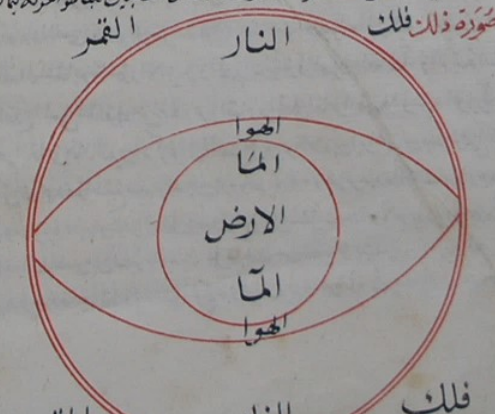 صورة ذلك
فلك القمر
النار
الهوا
المآ
الارض
المآ
الهوا
فلك